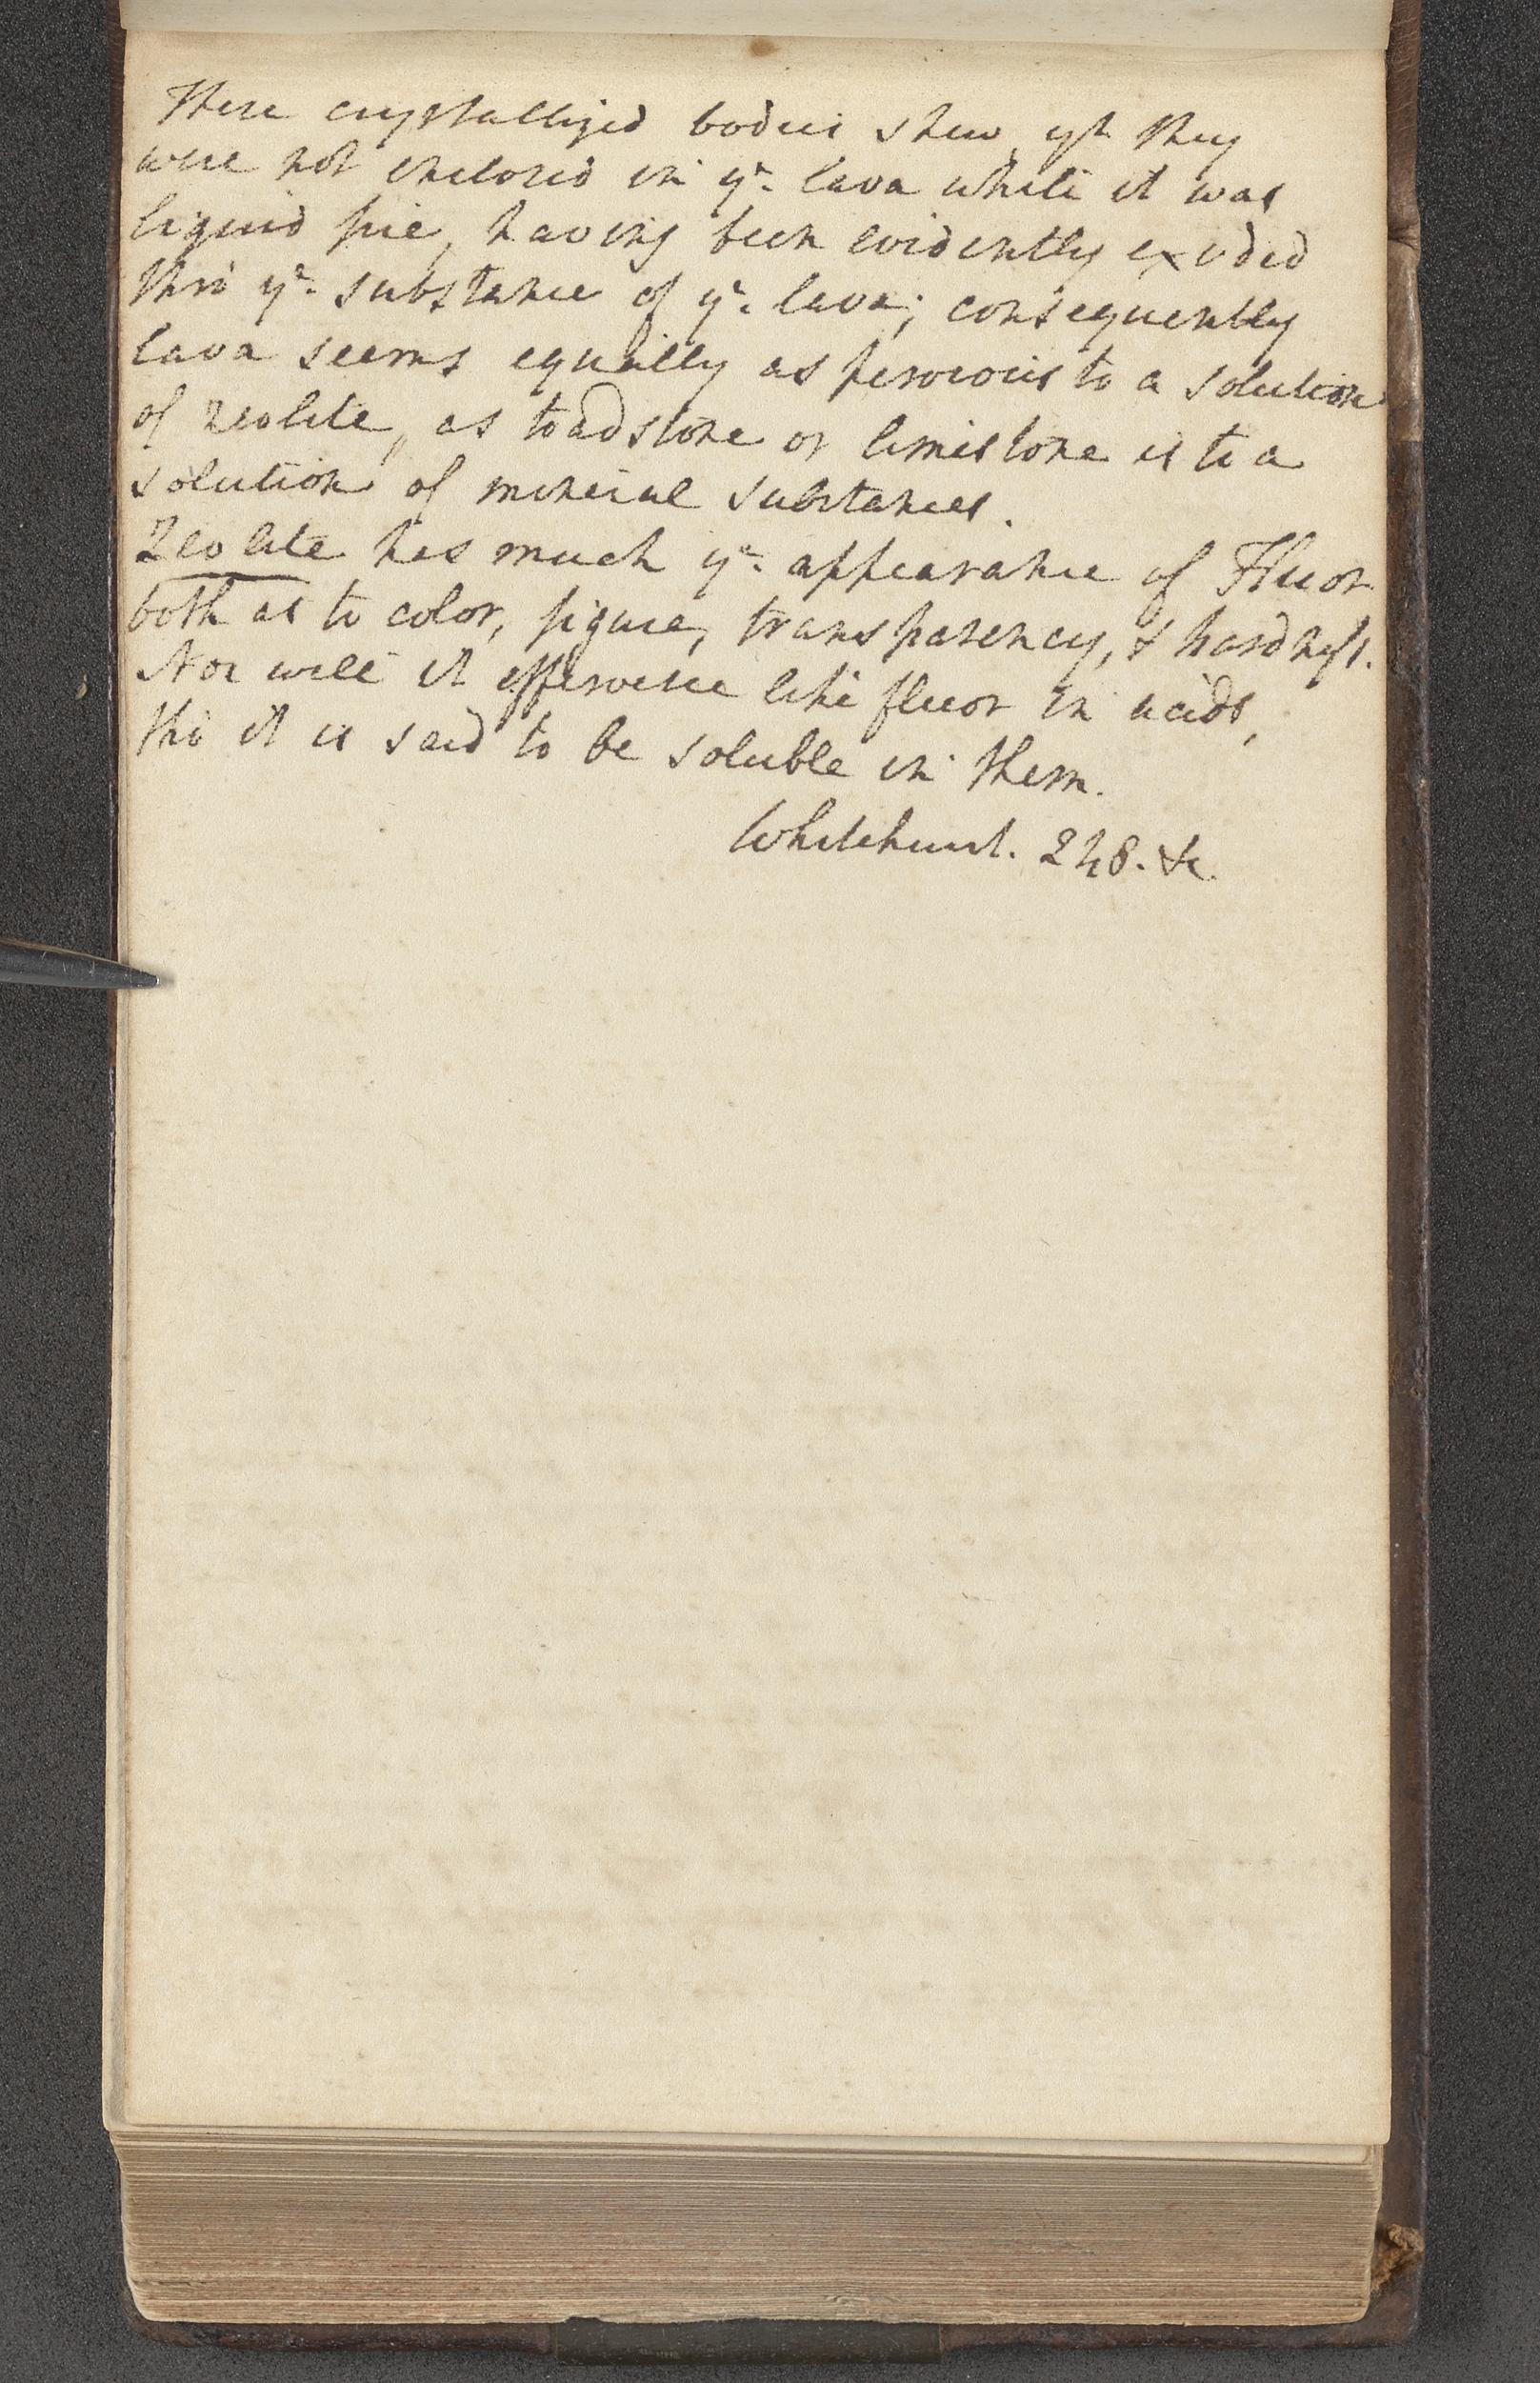 These crystallized bodies shew yt they
were not enclosed in ye. lava while it was
liquid fire, having been evidently exuded
thro' ye. substance of ye. lava; consequently
lava seems equally as pervious to a solution
of zeolite, as toadstone or limestone is to a
solution of mineral substances.
Zeolite has much ye. appearance of Fluor
both as to color, figure, transparency, & hardness.
Nor will it effervesce like fluor in acids,
tho' it is said to be soluble in them.
Whitehurst. 248. &c.